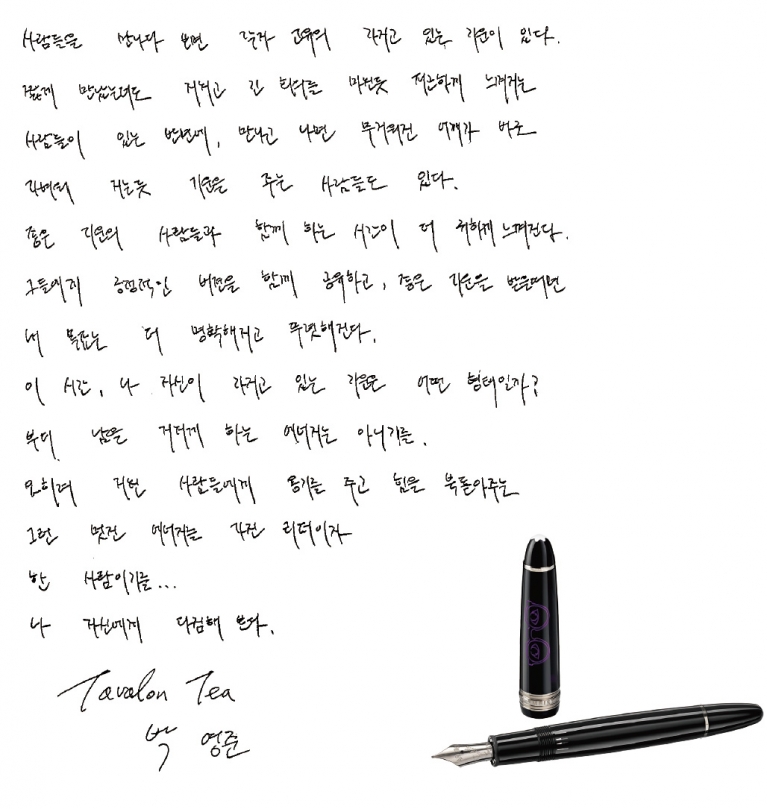 사람들을 만나다 보면 각자 고유의 가지고 있는 기운이 있다.
짧게 만났는데도 지치고 긴 회의를 마친듯 피곤하게 느껴지는
사람들이 있는 반면에, 만나고 나면 무거워진 어깨가 바로
가벼워 지는듯 기운을 주는 사람들도 있다.
좋은 기운의 사람들과 함께 하는 시간이 더 귀하게 느껴진다.
그들에게 긍정적인 버전을 함께 공유하고, 좋은 기운을 받을때면
내 목표는 더 명확해지고 뚜렷해진다.
이 시간, 나 자신이 가지고 있는 기운은 어떤 형태일까?
부디 남을 지치게 하는 에너지는 아니기를.
오히려 지친 사람들에게 용기를 주고 힘을 북돋아주는
그런 멋진 에너지를 가진 리더이자
한 사람이기를...
나 자신에게 다짐해 본다.
Tavalon Tea
박영준